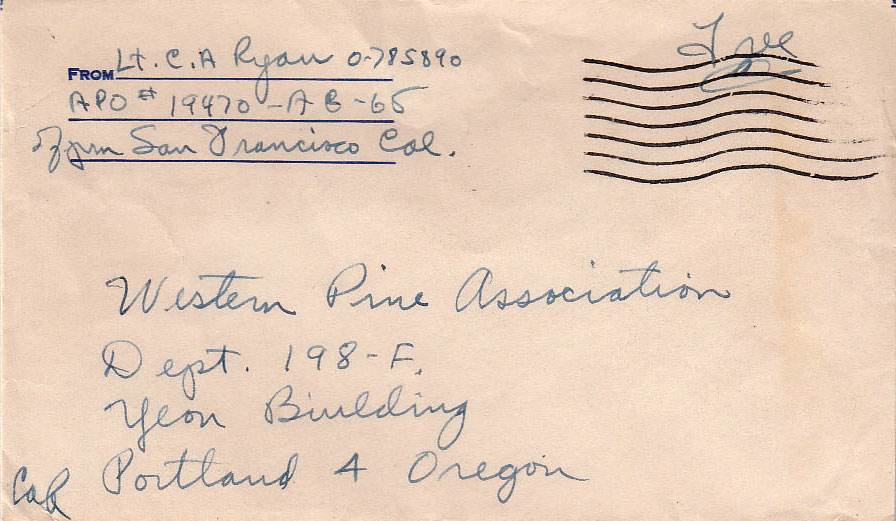 Free
FROM Lt. C. A Ryan O-785890
APO # 19470 - A B - 65
% pm San Francisco Cal.
Western Pine Association
Dept. 198-F.
Yeon Building
Portland 4 Oregon
CaR